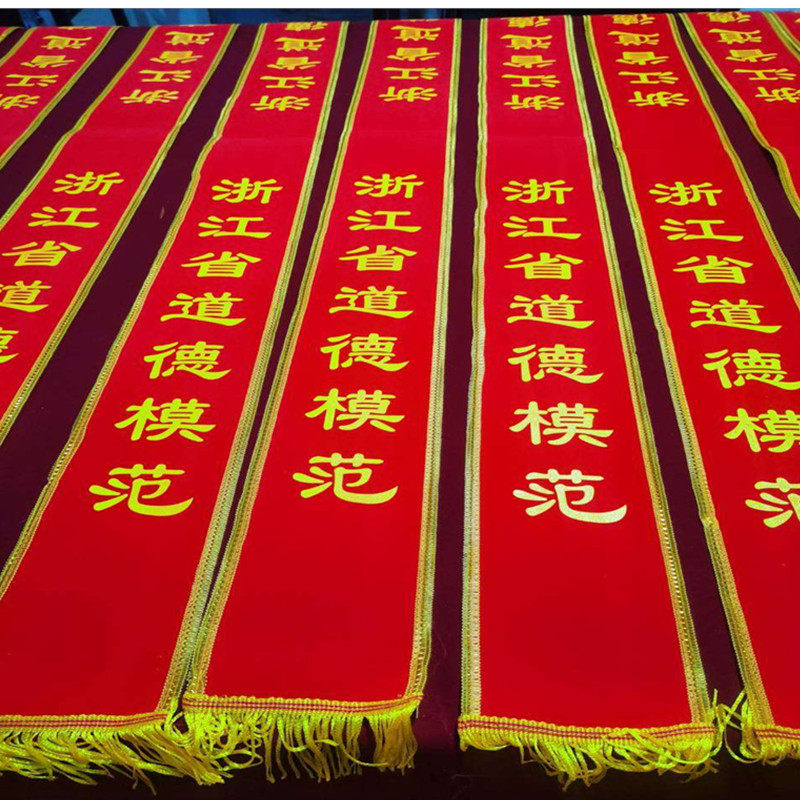 浙江省道
浙江省道
浙江省道德
浙江省道德
浙江省道德
浙江省道德
浙江省道德
浙江省道德
浙江省道德模范
浙江省道德模范
浙江省道德模范
浙江省道德模范